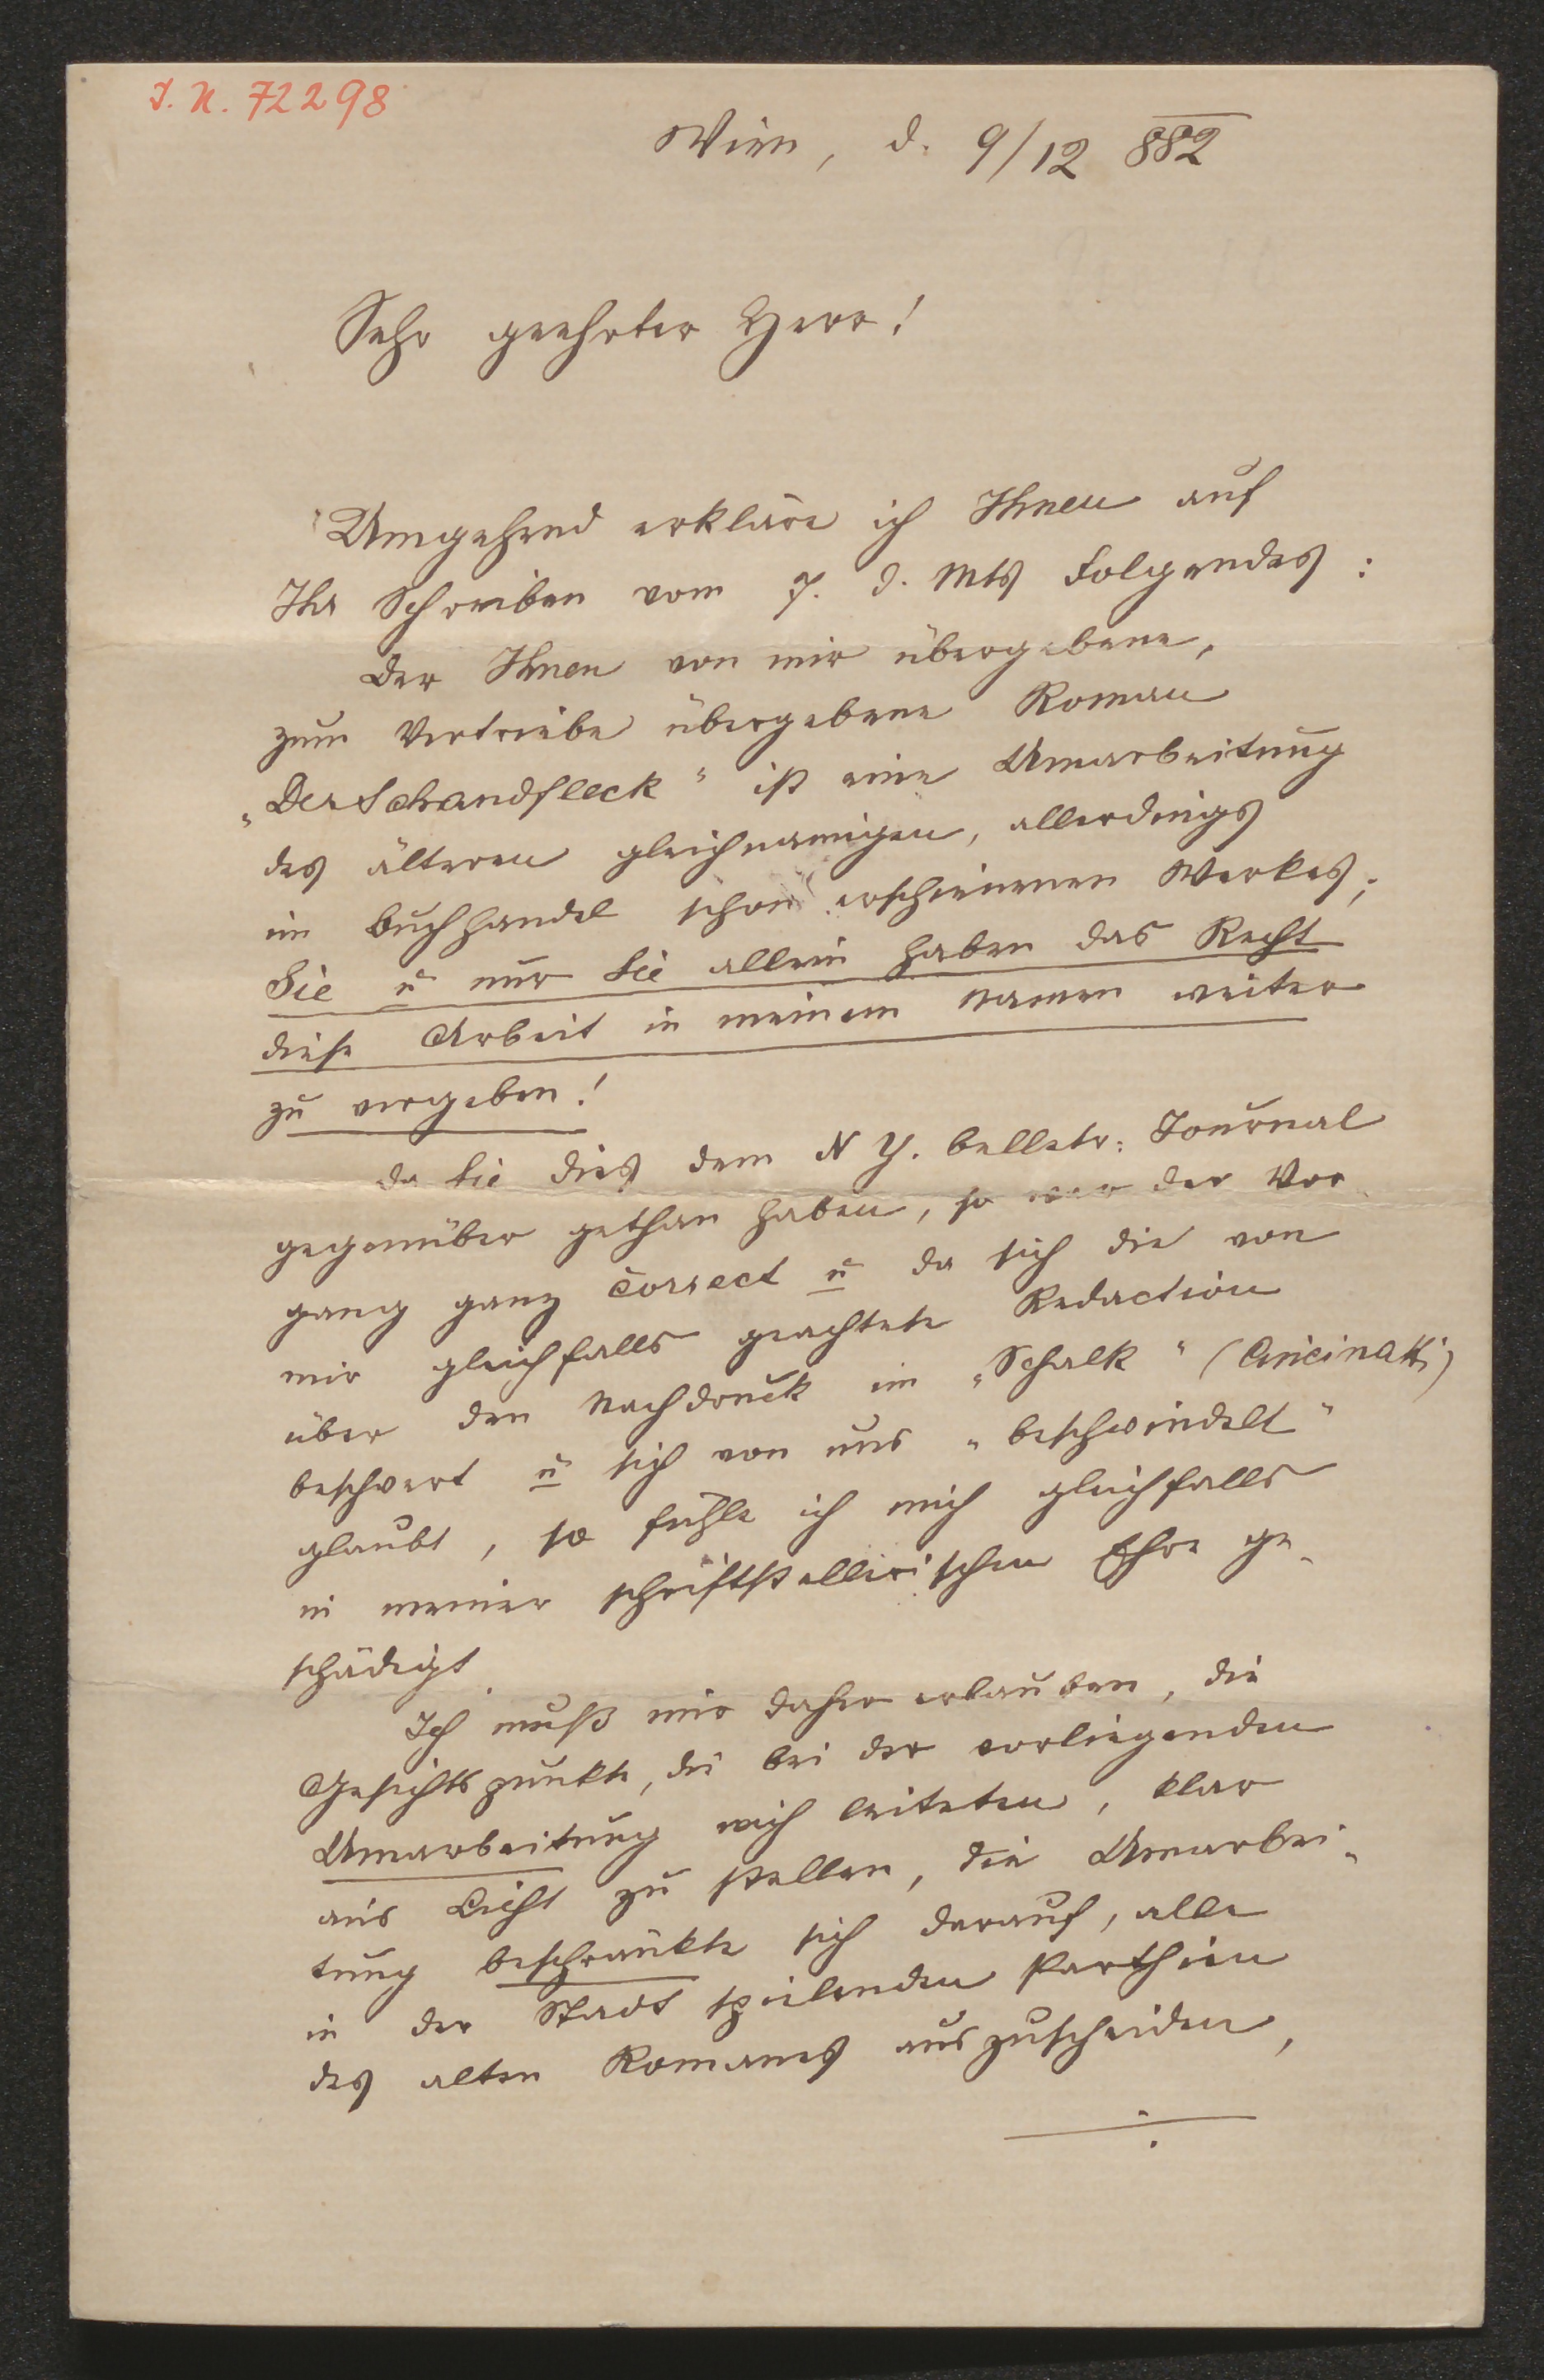 I. N. 72298
Wien, d. 9/12 882
Sehr geehrter Herr!
Umgehend erkläre ich Ihnen auf
Ihr Schreiben vom 7. d. Mts Folgendes:
Der Ihnen von mir übergebene,
zum Vertriebe übergebene Roman
„Der Schandfleck" ist eine Umarbeitung
des älteren gleichnamigen, allerdings
im Buchhandel schon erschienenen Werkes;
Sie u nur Sie allein haben das Recht
diese Arbeit in meinem Namen weiter
zu vergeben!
Da Sie dies dem N Y. belletr: Journal
gegenüber gethan haben, so war der Vor-
gang ganz correct u da sich die von
mir gleichfalls geachtete Redaction
über den Nachdruck im „Schalk" (Cincinatti)
beschwert u sich von uns „beschwindelt"
glaubt, so fühle ich mich gleichfalls
in meiner schriftstellerischen Ehre ge-
schädigt.
Ich muß mir daher erlauben, die
Gesichtspunkte, die bei der vorliegenden
Umarbeitung mich leiteten, klar
ans Licht zu stellen, die Umarbei-
tung beschränkte sich darauf, alle
in der Stadt spielenden Parthien
des alten Romanes auszuscheiden,